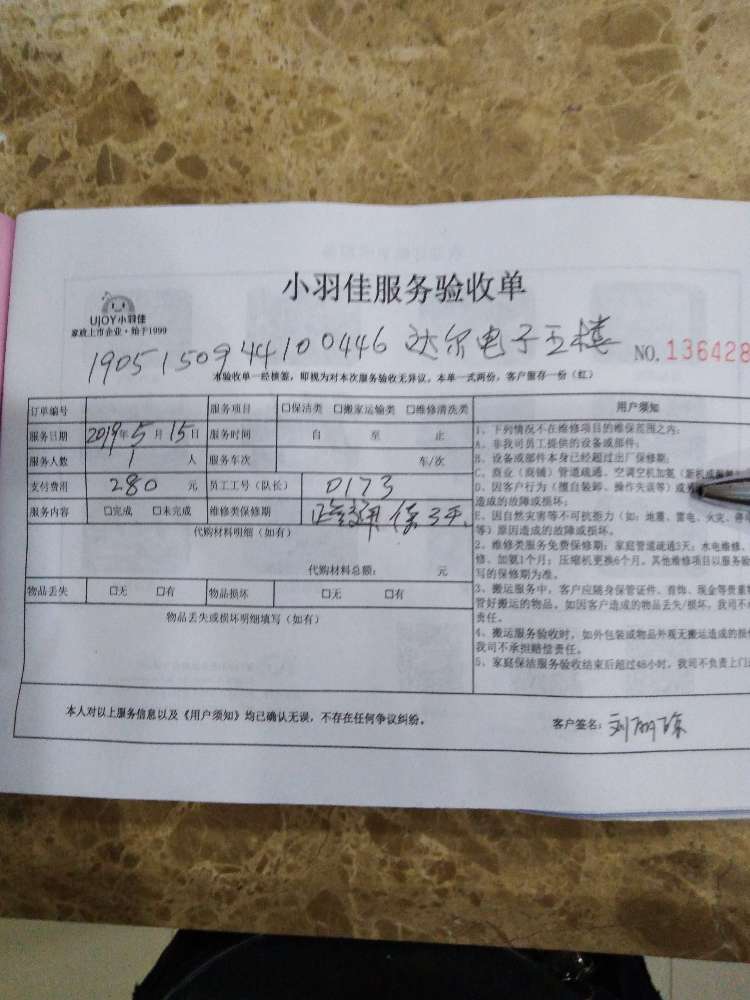 小羽佳服务验收单
UJOY小羽佳
家政上市企业·始于1999
1905150944100446 达尔电子五楼 NO. 136428
本验收单一经核签，即视为对本次服务验收无异议。本单一式两份，客户留存一份（红）
订单编号 服务项目 □保洁类 □搬家运输类 □维修清洗类
服务日期 2019年5月15日 服务时间 自 至 止
服务人数 1 人 服务车次 车/次
支付费用 280 元 员工工号（队长） 0173
服务内容 □完成 □未完成 维修类保修期 保3天
代购材料明细（如有）
代购材料总额： 元
物品丢失 □无 □有 物品损坏 □无 □有
物品丢失或损坏明细填写（如有）
用户须知
1、下列情况不在维修项目的维保范围之内：
A、非我司员工提供的设备或部件；
B、设备或部件本身已经超过出厂保修期；
C、商业（商铺）管道疏通、空调空机加氨（新机或
D、因客户行为（擅自装卸、操作失误等）或
造成的故障或损坏；
E、因自然灾害等不可抗拒力（如：地震、雷电、火灾、
等）原因造成的故障或损坏。
2、维修类服务免费保修期：家庭管道疏通3天；水电维修、
修、加氨1个月；压缩机更换6个月。其他维修项目以服务验
写的保修期为准。
3、搬运服务中，客户应随身保管证件、首饰、现金等贵重
管好搬运的物品，如因客户造成的物品丢失/损坏，我司不
责任。
4、搬运服务验收时，如外包装或物品外观无搬运造成的损
我司不承担赔偿责任。
5、家庭保洁服务验收结束后超过48小时，我司不负责上门
本人对以上服务信息以及《用户须知》均已确认无误，不存在任何争议纠纷。
客户签名：刘丽珍